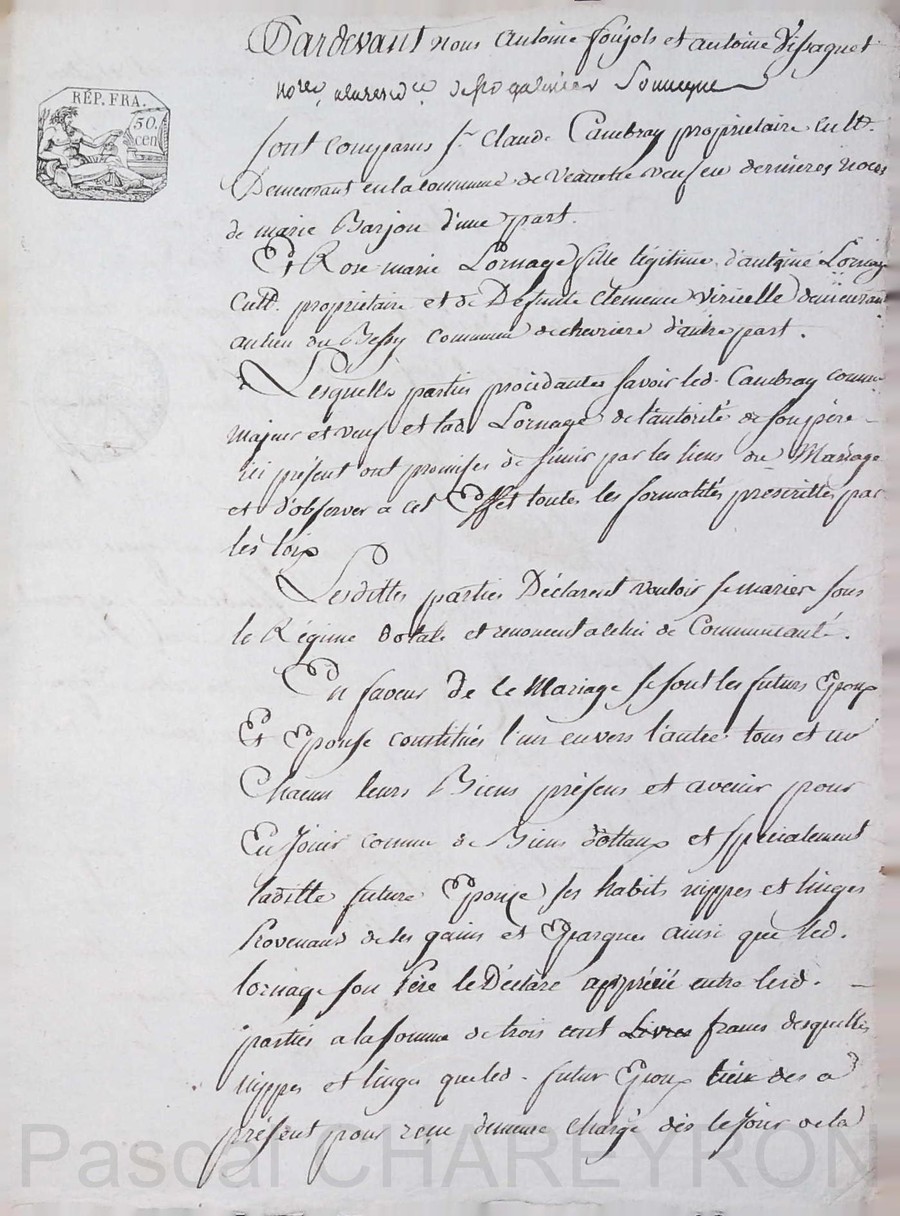 RÉP. FRA.
50.
cen
Pardevant nous Antoine foujols et antoine Dissaquet
nores
sont comparus sr. Claude Cambray proprietaire cultr.
Demeurant en la commune de veauche veuf en dernieres noces
de marie Barjou d'une part.
Et Rose marie Lornage fille légitime d'antoine Lornage
Cultr. proprietaire et de Defunte Clemence viricelle demeurant
au lieu du Bessy Commune de chevriere d'autre part.
Lesquelles parties procédantes savoir led. Cambray comme
majeur et veuf et lade Lornage de l'autorité de son père
ici présent ont promises de s'unir par les liens du Mariage
et d'observer a cet Effet toutes les formalités prescrittes par
les loix
Lesdittes parties Déclarent vouloir se marier sous
le Régime dotale et renoncent a celui de Communauté.
En faveur de ce Mariage se sont les futurs Epoux
Et Epouse constitués l'un envers l'autre tous et un
Chacun leurs Biens présens et avenir pour
En Jouir comme de Biens dottaux et spécialement
laditte future Epouse ses habits nippes et linges
Provenans de ses gains et Epargnes ainsi que led.
lornage son Père le Déclare apprécié entre lesd.
parties a la somme de trois cent Livres francs desquelles
nippes et linges que led. futur Epoux des a
présent pour reçue demeure Chargé dès le Jour de la
Pascal CHAREYRON